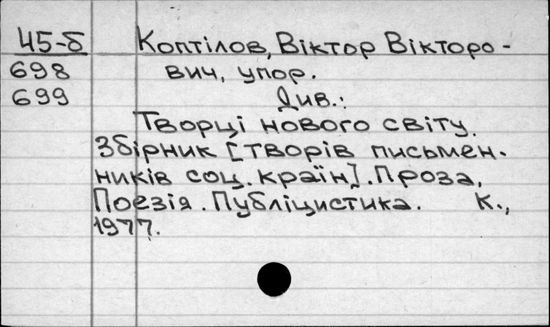 45-б Коптілов, Віктор Вікторо-
698 вич, упор.
699 Див.:
Творці нового світу.
Збірник [творів письмен-
ників соц. країн]. Проза,
Поезія. Публіцистика. К.,
1977.